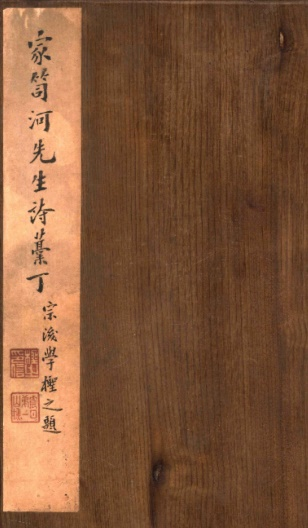 家笥河先生詩藁丁
宗後學檉之題